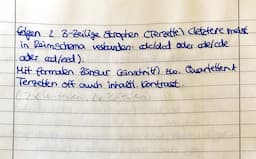 folgen 2 3-zeilige Strophen (Terzette) (letztere meist
in Reimschema verbunden: cdc/dcd oder cde/cde
oder ccd/eed).
Mit formalen Zäsur (Einschnitt) zw. Quartetten +
Terzetten oft auch inhaltl. Kontrast.